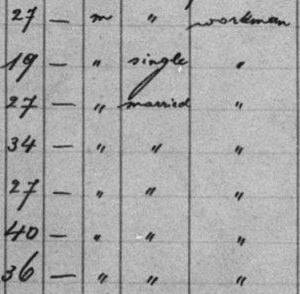 27 — m " workman
19 — " single "
27 — " married "
34 — " " "
27 — " " "
40 — " " "
36 — " " "